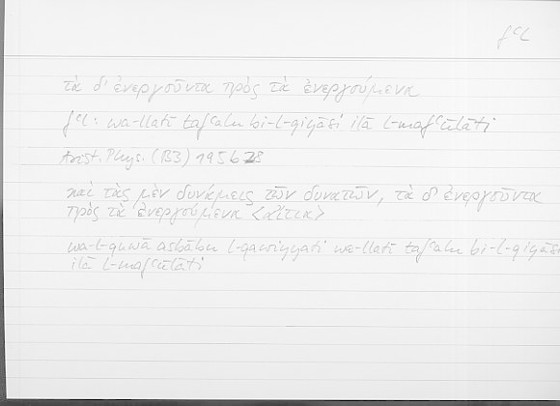 fʿl
τὰ δ' ἐνεργοῦντα πρὸς τὰ ἐνεργούμενα
fʿl: wa-llatī tafʿalu bi-l-qiyāsi ilā l-mafʿūlāti
Arist. Phys. (B3) 195b28
καὶ τὰς μὲν δυνάμεις τῶν δυνατῶν, τὰ δ' ἐνεργοῦντα
πρὸς τὰ ἐνεργούμενα <αἴτια>
wa-l-quwā asbābu l-qawiyyati wa-llatī tafʿalu bi-l-qiyāsi
ilā l-mafʿūlāti